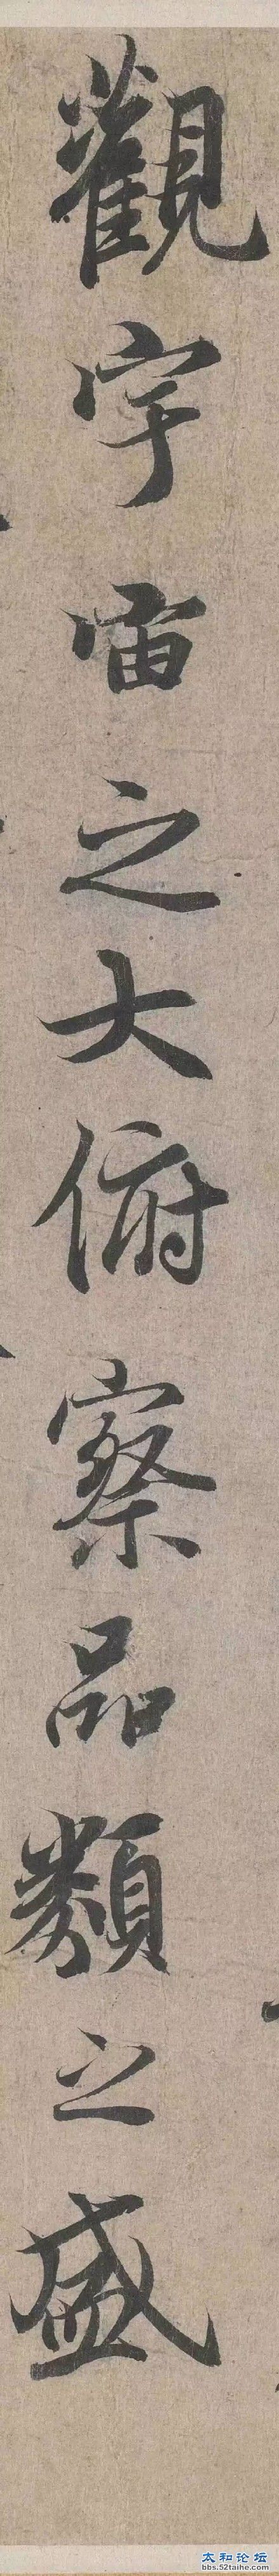 觀宇宙之大俯察品類之盛
太和论坛
bbs.52taihe.com